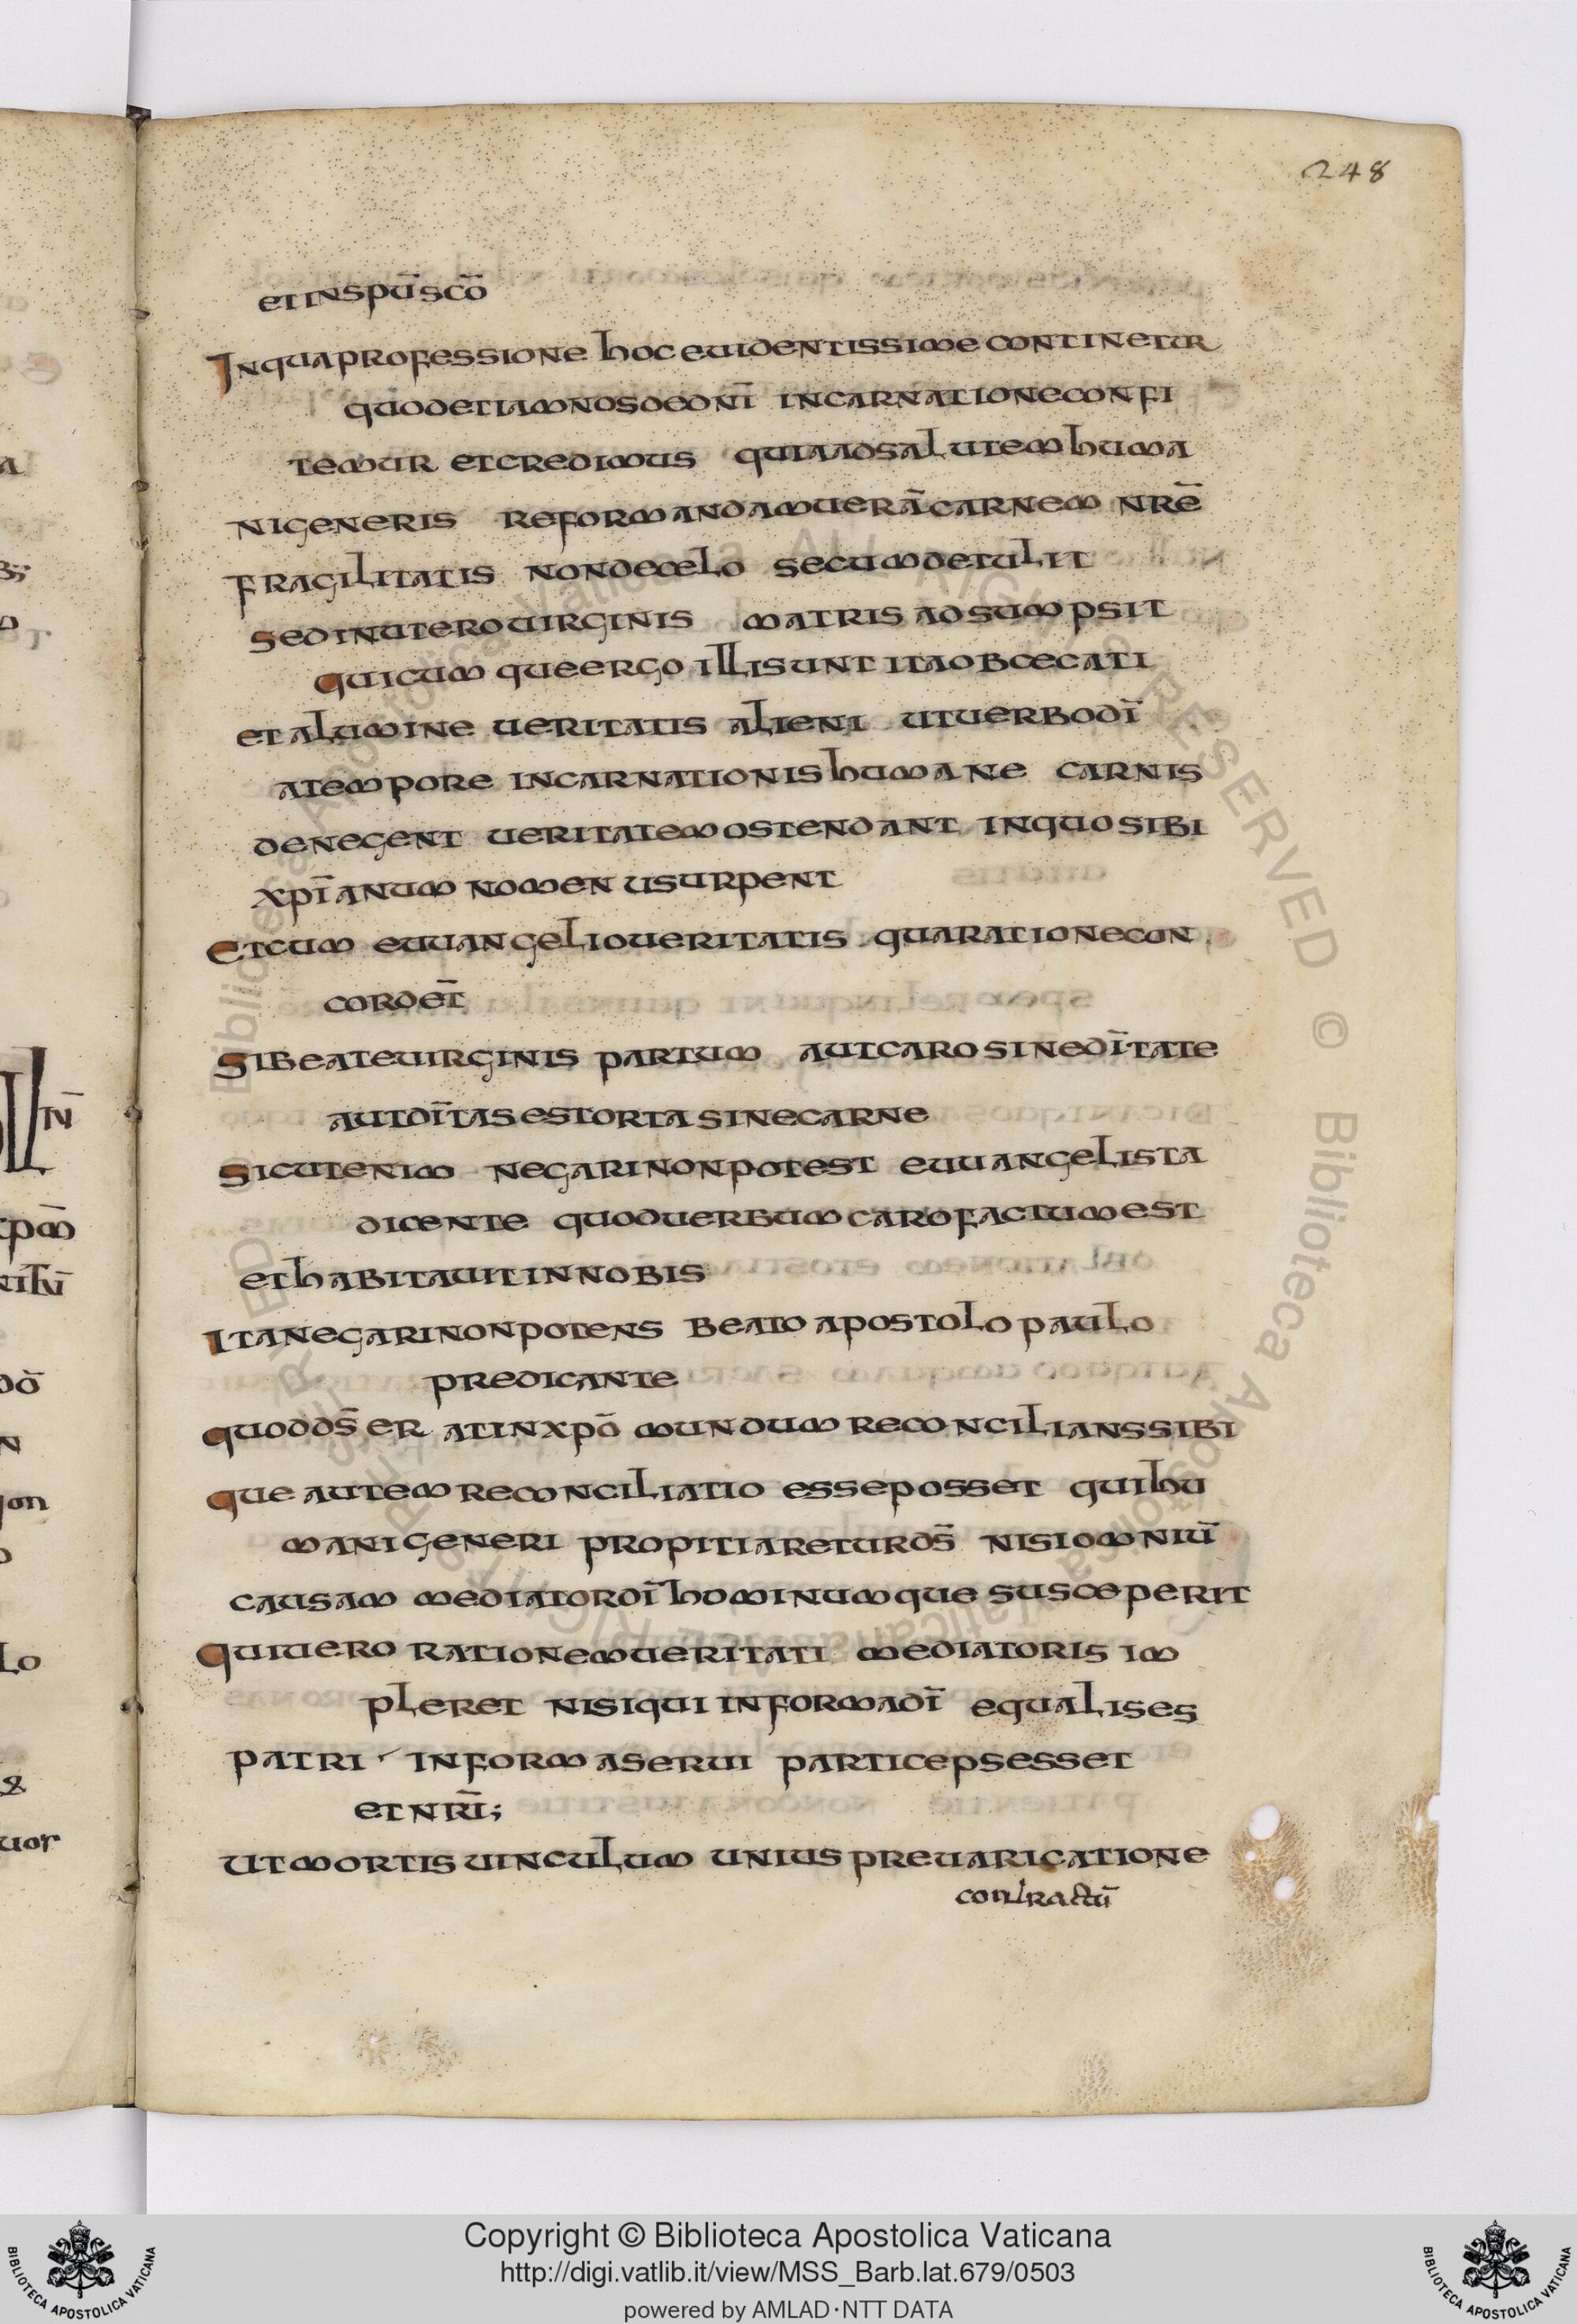 248
et in spū scō
In qua professione hoc euidentissime continetur
quod etiam nos de dnī incarnatione confi
temur et credimus quia ad salutem huma
ni generis reformandam uerā carnem nrē
fragilitatis non de celo secum detulit
sed in utero uirginis matris adsumpsit
quicumque ergo illi sunt ita obcecati
et a lumine ueritatis alieni ut uerbo dī
a tempore incarnationis humane carnis
denegent ueritatem ostendant in quo sibi
xpīanum nomen usurpent
Et cum euuangelio ueritatis qua ratione con
cordet̄
Si beate uirginis partum aut caro sine dītate
aut dītas est orta sine carne
Sicut enim negari non potest euuangelista
dicente quod uerbum caro factum est
et habitauit in nobis
Ita negari non potens beato apostolo paulo
predicante
quod ds̄ erat in xpō mundum reconcilians sibi
que autem reconciliatio esse posset qui hu
mani generi propitiaretur ds̄ nisi omniū
causam mediator dī hominumque susceperit
Qui uero rationem ueritati mediatoris im
pleret nisi qui in forma dī equalis es
patri in forma serui particeps esset
et nrī;
Ut mortis uinculum unius preuaricatione
contractū
Copyright © Biblioteca Apostolica Vaticana
http://digi.vatlib.it/view/MSS_Barb.lat.679/0503
powered by AMLAD·NTT DATA